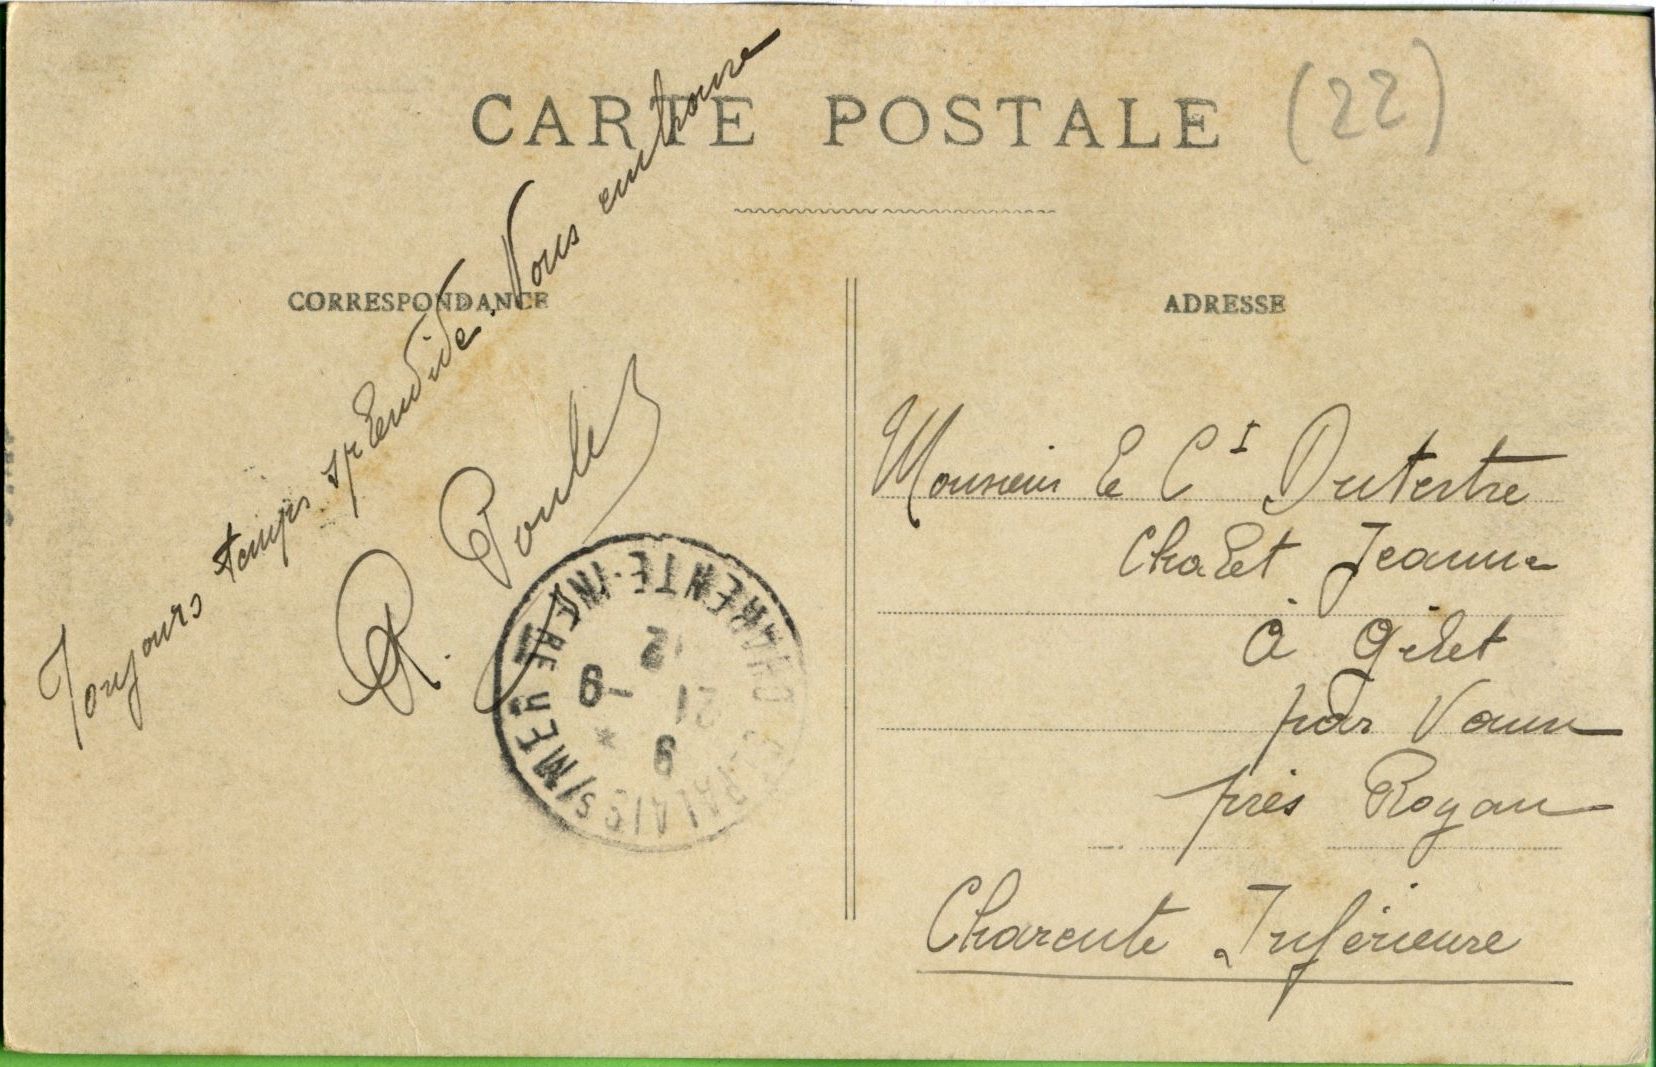 CARTE POSTALE
(22)
CORRESPONDANCE
ADRESSE
Toujours temps splendide. Vous
R. Poulet
Monsieur le Ct Dutertre
Chalet Jeanne
à Gilet
par Vaux
près Royan
Charente Inférieure
CHARENTE-INFÉRE
PALAIS S/MER
12
9 -
21
9